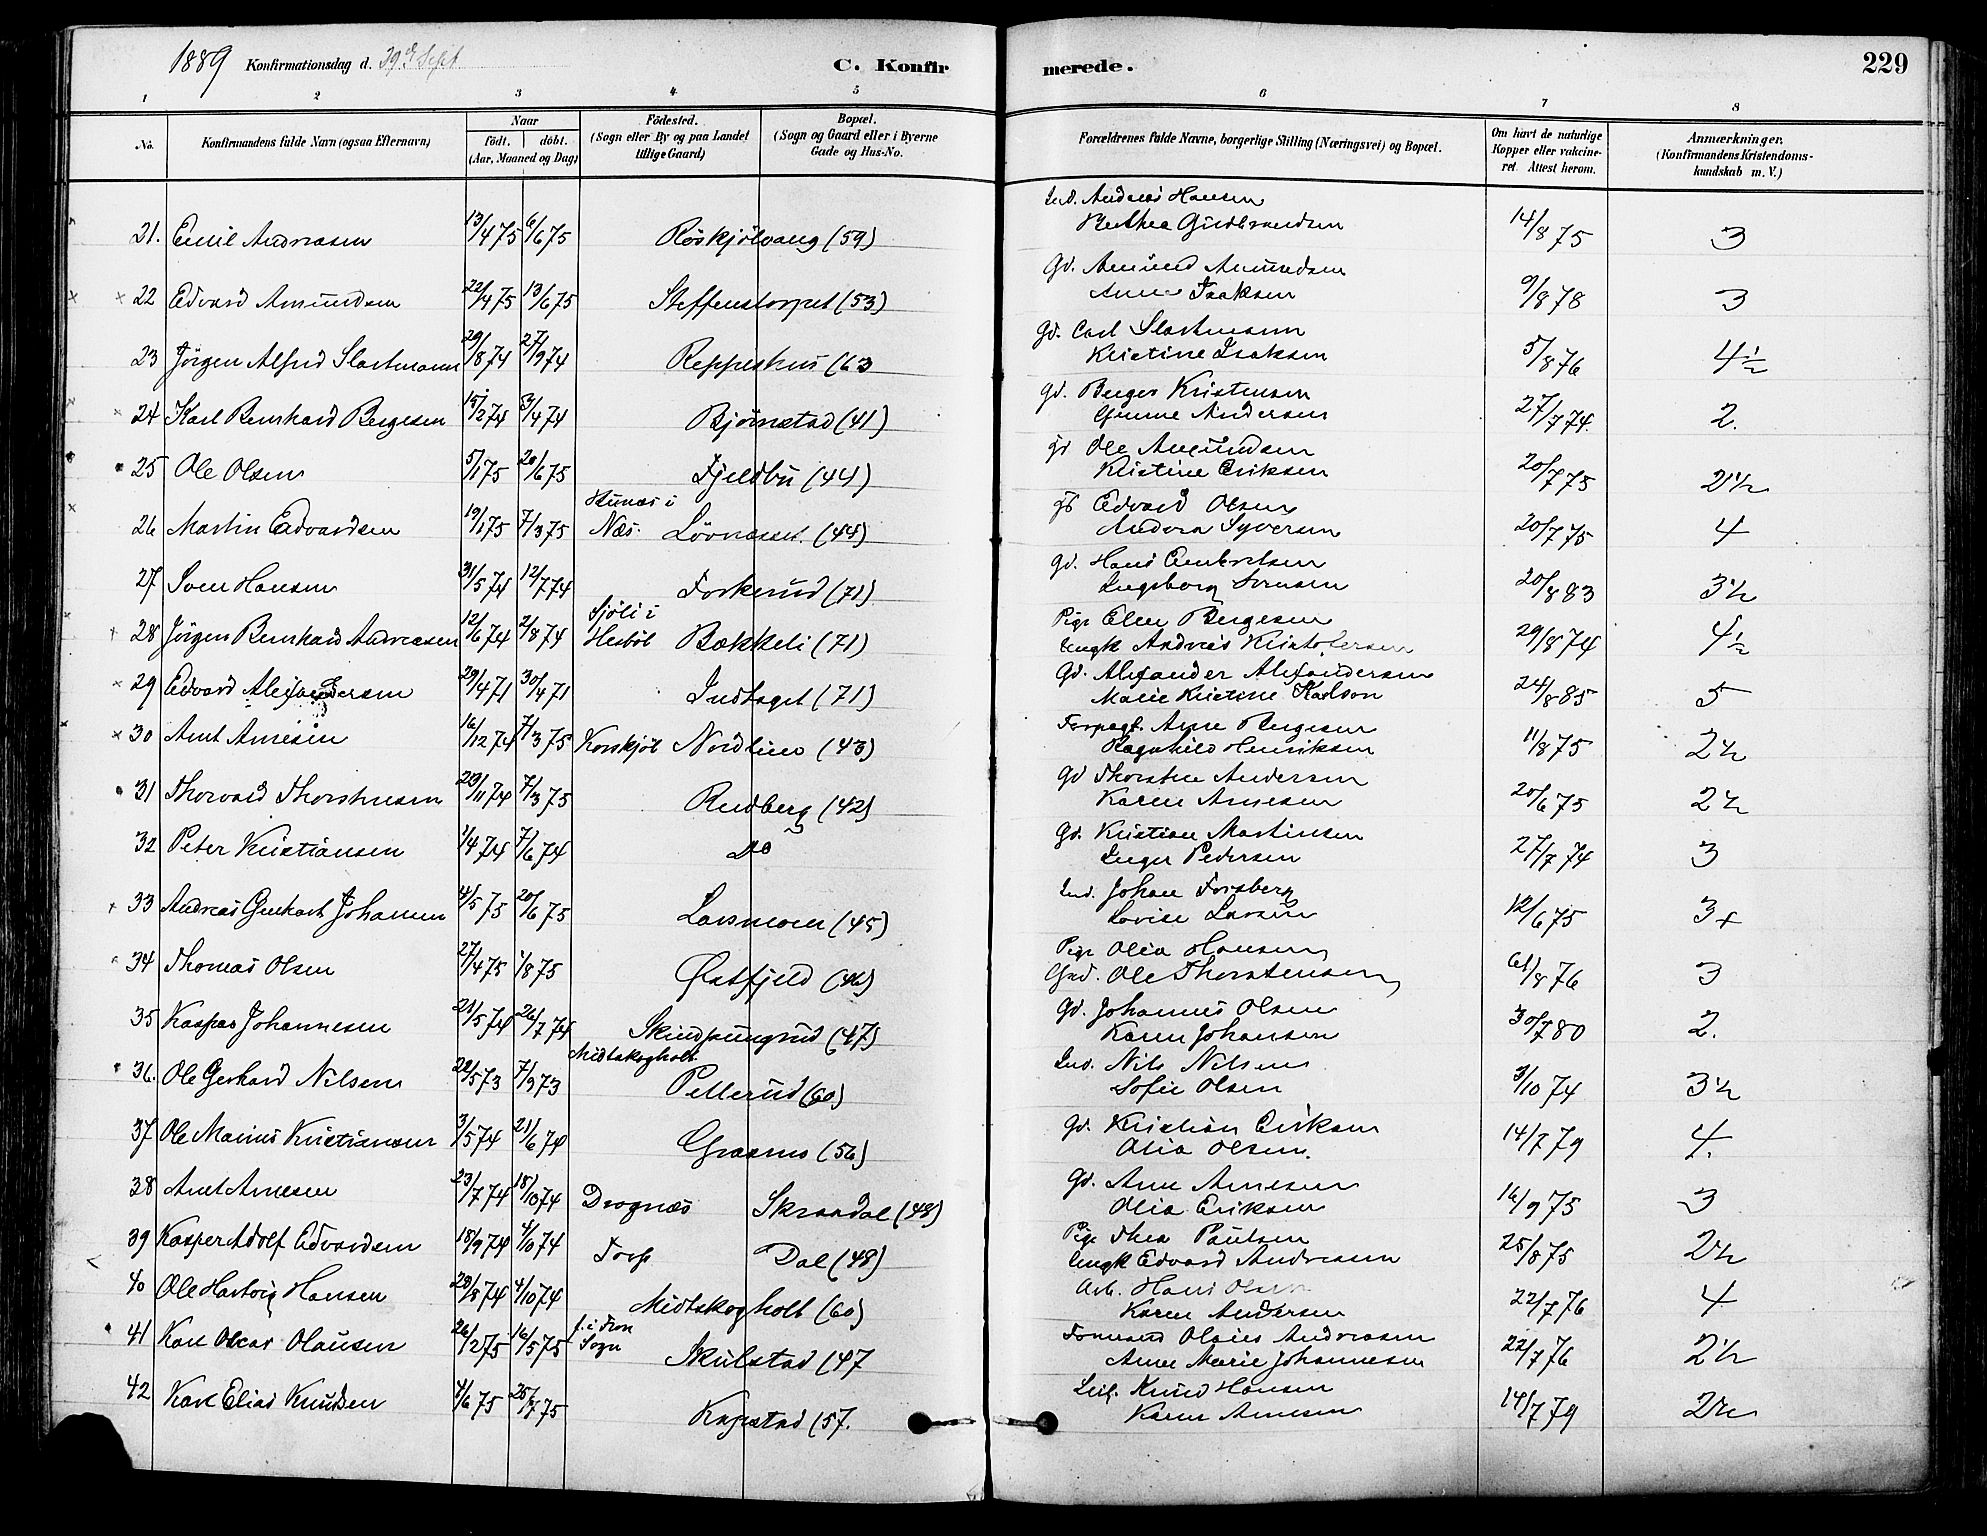 1889 Konfirmationsdag d. 29d Sept C. Konfirmerede. 229
1 2 3 4 5 6 7 8
No. Konfirmandens fulde Navn (ogsaa Efternavn) Naar födt. döbt. (Aar, Maaned og Dag) Födested. (Sogn eller By og paa Landet tillige Gaard) Bopæl. (Sogn og Gaard eller i Byerne Gade og Hus-No. Forældrenes fulde Navne, borgerlige Stilling (Næringsvei) og Bopæl. Om havt de naturlige Kopper eller vakcineret. Attest herom. Anmærkninger. (Konfirmandens Kristendomskundskab m. V.)
Ind. Andreas Hansen
21. Emil Andreasen 13/4 75 6/6 75 Röskjölvang (59) Berthea Gudbrandsen 14/8 75 3
Gd. Amund Amundsen
22 Edvard Amundsen 22/4 75 13/6 75 Steffenstorpet (53) Anne Isaksen 9/8 78 3
Gd. Carl Slastmann
23 Jörgen Alfred Slastmann 29/8 74 27/9 74 Reppeshus (63 Kristine Isaksen 5/8 76 4½
Gd. Berger Kristensen
24 Karl Bernhard Bergesen 15/2 74 3/4 74 Bjørnstad (41) Gunne Andersen 27/7 74. 2.
gd Ole Amundsen
25 Ole Olsen 5/1 75 20/6 75 Fjeldbu (44) Kristine Eriksen 20/7 75 2½
gd Edvard Olsen
26 Martin Edvardsen 19/1 75 7/3 75 Næs. Lövnæsset. (44) Andora Syversen 20/7 75 4
Gd. Hans Embretsen
27 Sven Hansen 31/5 74 12/7 74 Forkerud (71) Ingeborg Svensen 20/8 83 3½
Sjöli i Pige Elen Bergesen
28 Jörgen Bernhard Andreasen 12/6 74 2/8 74 Hesböl Bækkeli (71) Ungk Andreas Kristofersen 29/8 74 4½
Gd. Alexander Alexandersen
29 Edvard Alexandersen 29/4 71 30/4 71 Indtaget (71) Marie Kristine Karlson 24/8 85 5
Forpagt. Arne Bergesen
30 Arnt Arnesen 16/12 74 7/3 75 Korskjöl Nordlien (43) Ragnhild Henriksen 11/8 75 2½
Gd Thorsten Andersen
31 Thorvald Thorstensen 29/11 74 7/3 75 Rudberg (42) Karen Arnesen 20/6 75 2½
Gd. Kristian Martinsen
32 Peter Kristiansen 1/4 74 7/6 74 Do Inger Pedersen 27/7 74 3
Ind. Johan Forsberg
33 Andreas Gerhart Johansen 4/5 75 20/6 75 Larsmoen (45) Lovise Larsen 12/6 75 3+
Pige Olea Hansen
34 Thomas Olsen 27/4 75 1/8 75 Østfjeld (46) Gud. Ole Thorstensen 8 76 3
Gd. Johannes Olsen
35 Kaspar Johannesen 21/5 74 26/7 74 Skindpungrud (47) Karen Johansen 30/7 80 2.
Midtskogholt Ind. Nils Nilsen
36. Ole Gerhard Nilsen 22/5 73 7/9 73 Pellerud (60) Sofie Olsen 3/10 74 3½
Gd. Kristian Eriksen
37 Ole Marius Kristiansen 3/5 74 21/6 74 Graamo (56) Olia Olsen. 14/7 79 4.
Gd. Arne Arnesen
38 Arnt Arnesen 23/7 74 18/10 74 Drognæs Skrandal (48) Olia Eriksen 16/9 75 3
Pige Thea Paulsen
39 Kasper Adolf Edvardsen 18/9 74 4/10 74 Torp Dal (48) Ungk Edvard Andresen 25/8 75 2½
Arb. Hans Olsen
40 Ole Hartvig Hansen 29/8 74 4/10 74 Midtskogholt (60) Karen Andersen 22/7 76 4
f. i Fron Formand Olaus Andreasen
41 Karl Oscar Olausen 26/2 75 16/5 75 Sogn Skulstad (47 Anne Marie Johannesen 22/7 76 2½
Leil. Knud Hansen
42 Karl Elias Knudsen 4/6 75 25/7 75 Kapstad (57. Karen Arnesen 14/7 79 2½